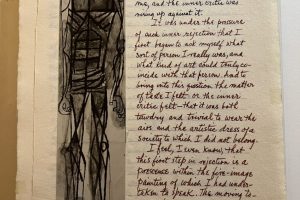 me, and the inner critic was
rising up against it.
It was under the pressure
of such inner rejection that I
first began to ask myself what
sort of person I really was, and
what kind of art could truly co-
incide with that person. And to
bring into this question the matter
of taste I felt – or the inner
critic felt – that it was both
tawdry and trivial to wear the
airs and the artistic dress of a
society to which I did not belong.
I feel, I even know, that
this first step in rejection is a
presence within the fire-image
painting of which I had under-
taken to speak. The moving to-